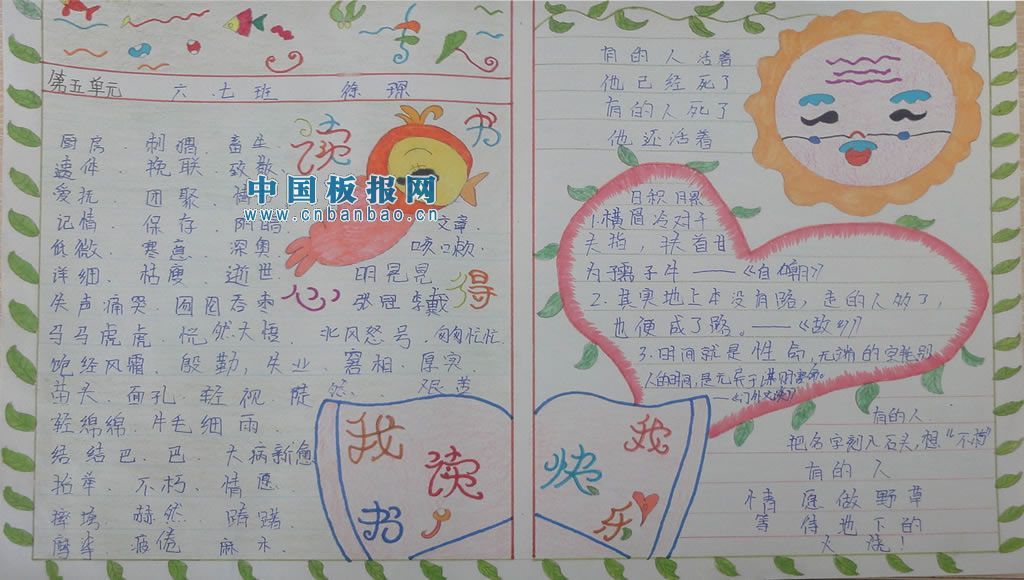 第五单元 六.七班 徐琛
读书心得
厨房、刺猬、畜生
遗体、挽联、致敬
爱抚、团聚、情
记情、保存、陪 文章、
低微、寒意、深奥、咳嗽、
详细、枯瘦、逝世、明晃晃
失声痛哭、囫囵吞枣、张冠李戴
马马虎虎、恍然大悟、北风怒号、匆匆忙忙、
饱经风霜、殷勤、失业、窘相、厚实
苗头、面孔、轻视、陡然、艰苦
轻绵绵、牛毛细雨、
结结巴巴、大病新愈
抬举、不朽、情愿、
赫然、踌躇、
摩拳、疲倦、麻木、
中国板报网
www.cnbanbao.cn
我读书
我快乐
有的人活着
他已经死了
有的人死了
他还活着
日积月累
1.横眉冷对千
夫指，扶首甘
为孺子牛——《自嘲》
2.其实地上本没有路，走的人多了，
也便成了路。——《故乡》
3.时间就是性命，无端的空耗别
人的时间，是无异于谋财害命。
——《门外文谈》
有的人
把名字刻入石头，想“不朽”
有的人
情愿做野草
等待地下的
火烧！